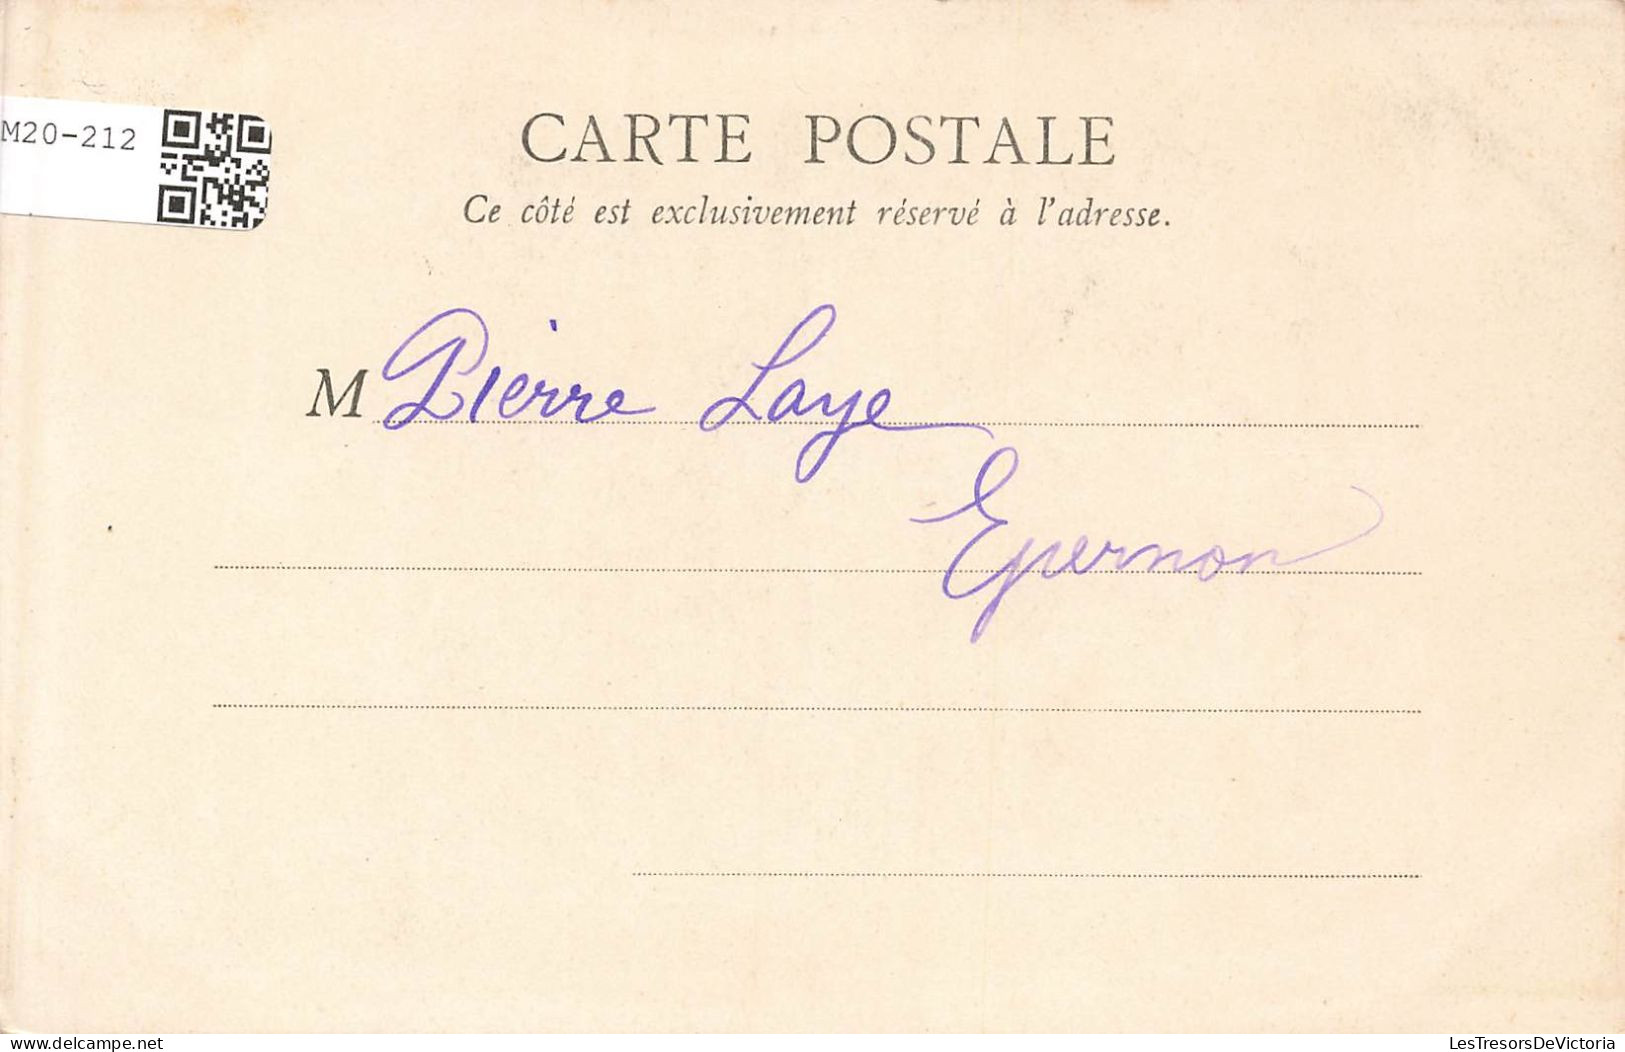 M20-212
CARTE POSTALE
Ce côté est exclusivement réservé à l'adresse.
M Pierre Laye
Epernon
LesTresorsDeVictoria
delcampe.net